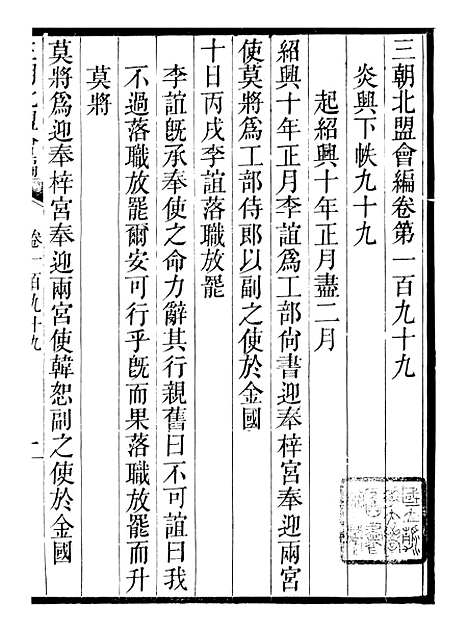 三朝北盟會編卷第一百九十九
炎興下帙九十九
起紹興十年正月盡二月
紹興十年正月李誼爲工部尙書迎奉梓宮奉迎兩宮
使莫將爲工部侍郎以副之使於金國
十日丙戌李誼落職放罷
李誼旣承奉使之命力辭其行親舊曰不可誼曰我
不過落職放罷爾安可行乎旣而果落職放罷而升
莫將
莫將爲迎奉梓宮奉迎兩宮使韓恕副之使於金國
卷一百九十九